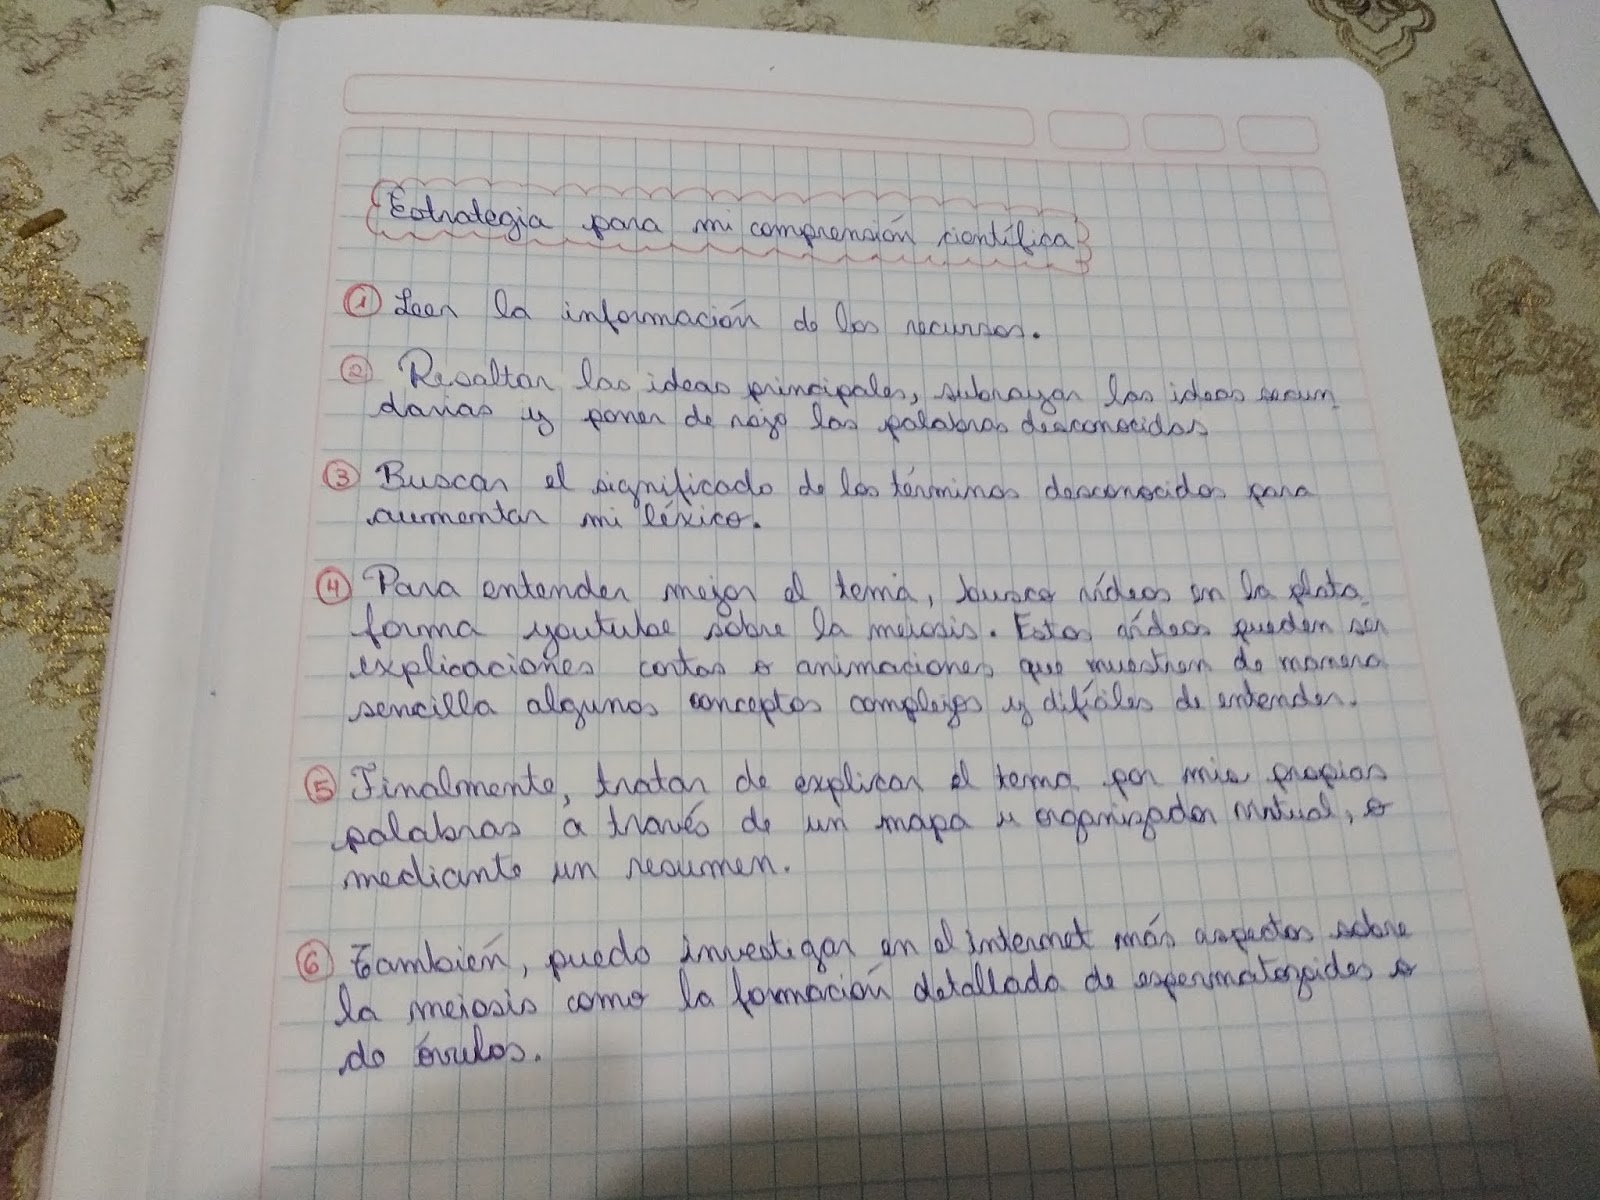 Estrategia para mi comprensión científica
1 Leer la información de los recursos.
2 Resaltar las ideas principales, subrayar las ideas secun-
darias y poner de rojo las palabras desconocidas
3 Buscar el significado de los términos desconocidos para
aumentar mi léxico.
4 Para entender mejor el tema, busco vídeos en la plata-
forma youtube sobre la meiosis. Estos vídeos pueden ser
explicaciones cortas o animaciones que muestren de manera
sencilla algunos conceptos complejos y difíciles de entender.
5 Finalmente, tratar de explicar el tema por mis propias
palabras a través de un mapa u organizador virtual, o
mediante un resumen.
6 También, puedo investigar en el internet más aspectos sobre
la meiosis como la formación detallada de espermatozoides o
de óvulos.